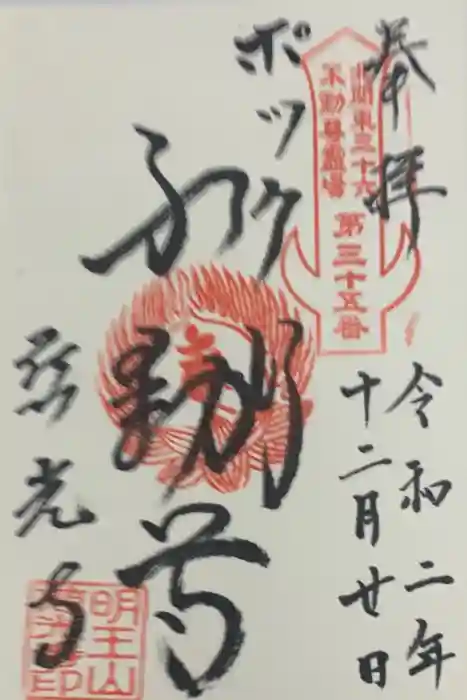 奉拝
令和二年
十二月廿日
北関東三十六
不動尊霊場
第三十五番
ポックリ
不動尊
慈光寺
明王山